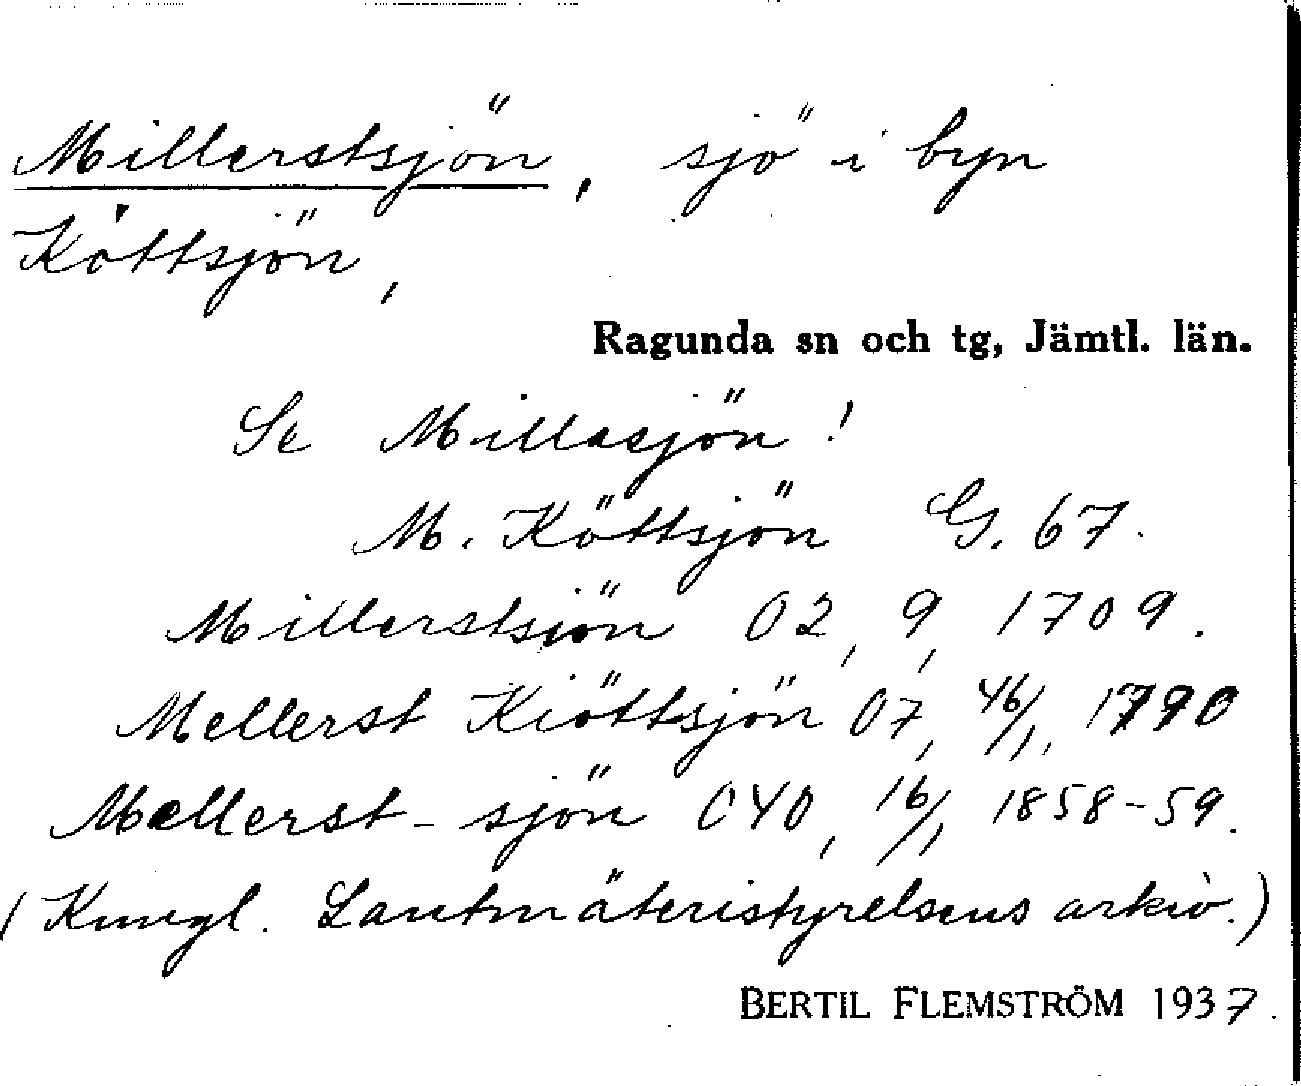 Millerstsjön, sjö i byn
Köttsjön,
Ragunda sn och tg, Jämtl. län.
Se Millasjön!
M. Köttsjön G. 67.
Millerstsiön 02, 9, 1709.
Mellerst Kiöttsjön 07, 46/1, 1790
Mellerst-sjön 040, 16/1, 1858-59.
(Kungl. Lantmäteristyrelsens arkiv.)
BERTIL FLEMSTRÖM 1937.